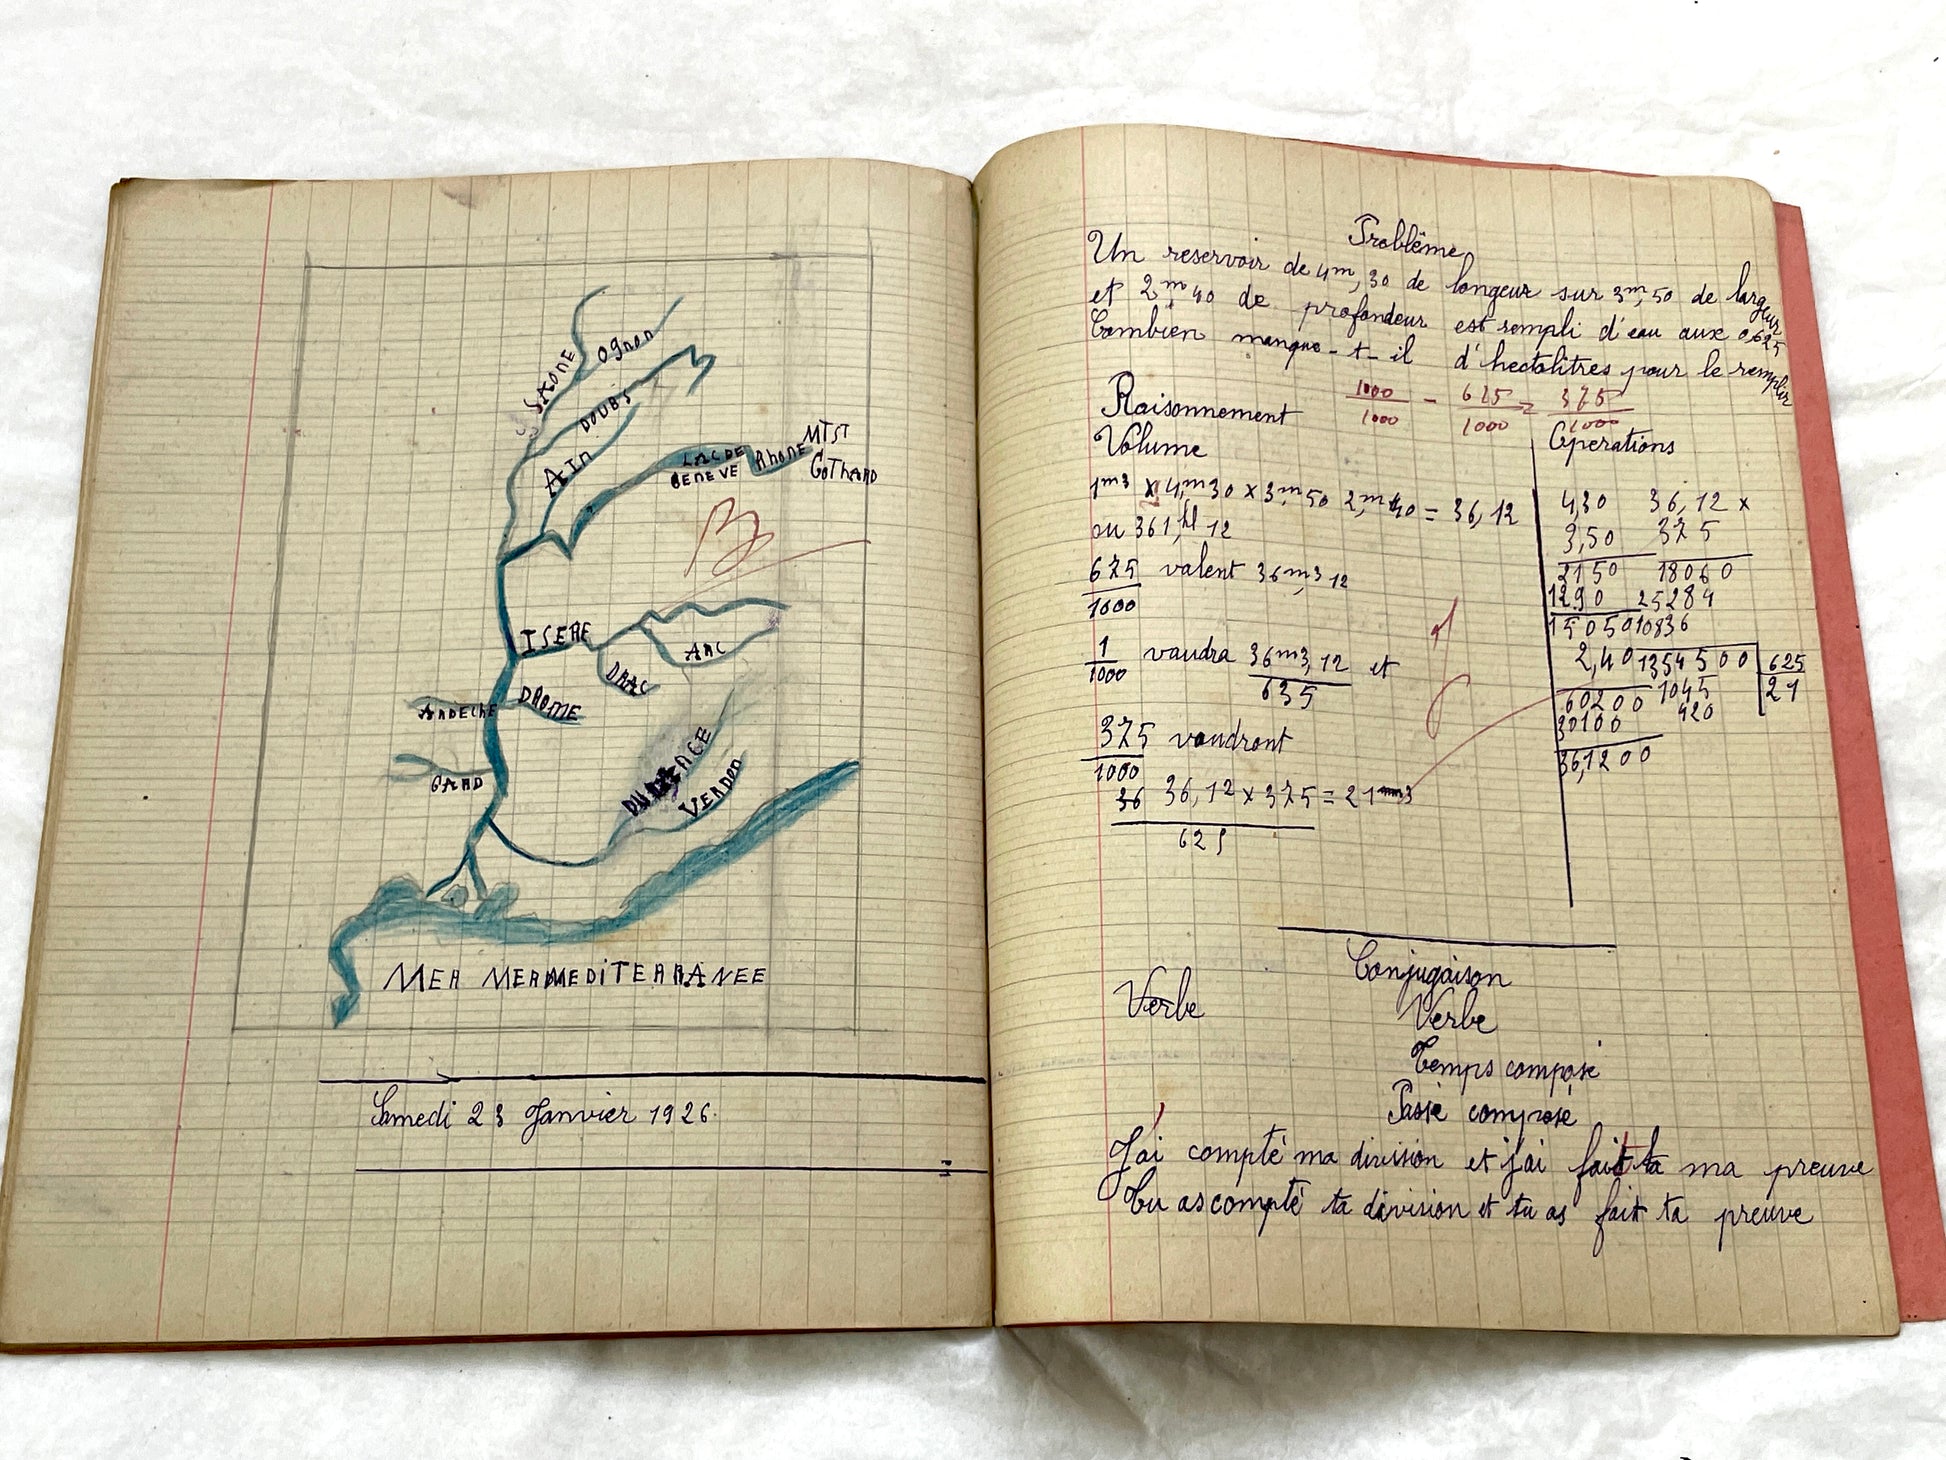 SAONE
Ognon
DOUBS
AIn
LAC DE
GENEVE
RhonE
MT ST
GoThARD
B
ISERE
ARC
DRAC
DROME
ARDECHE
GARD
VERDON
MER MERMEDITERRANEE
Samedi 23 Janvier 1926.
Problème
Un reservoir de 4m,30 de longeur sur 3m,50 de largeur
et 2m,40 de profondeur est rempli d'eau aux 0,625
Combien manque-t-il d'hectolitres pour le remplir
1000/1000 - 625/1000 = 375/1000
Raisonnement
Volume
1m3 x 4,m30 x 3m,50 2,m40 = 36,12
ou 361,hl 12
675/1000 valent 36m3,12
1/1000 vaudra 36m3,12/635 et
375/1000 vaudront
36 36,12 x 375/625 = 21
Opérations
4,30
3,50
2150
1290
15050
2,40
60200
30100
36,1200
36,12 x
375
18060
25284
10836
1354500 625
1045 21
420
Conjugaison
Verbe
Verbe
Temps composé
Passé composé
J'ai compté ma division et j'ai fait ta ma preuve
Tu as compté ta division et tu as fait ta preuve